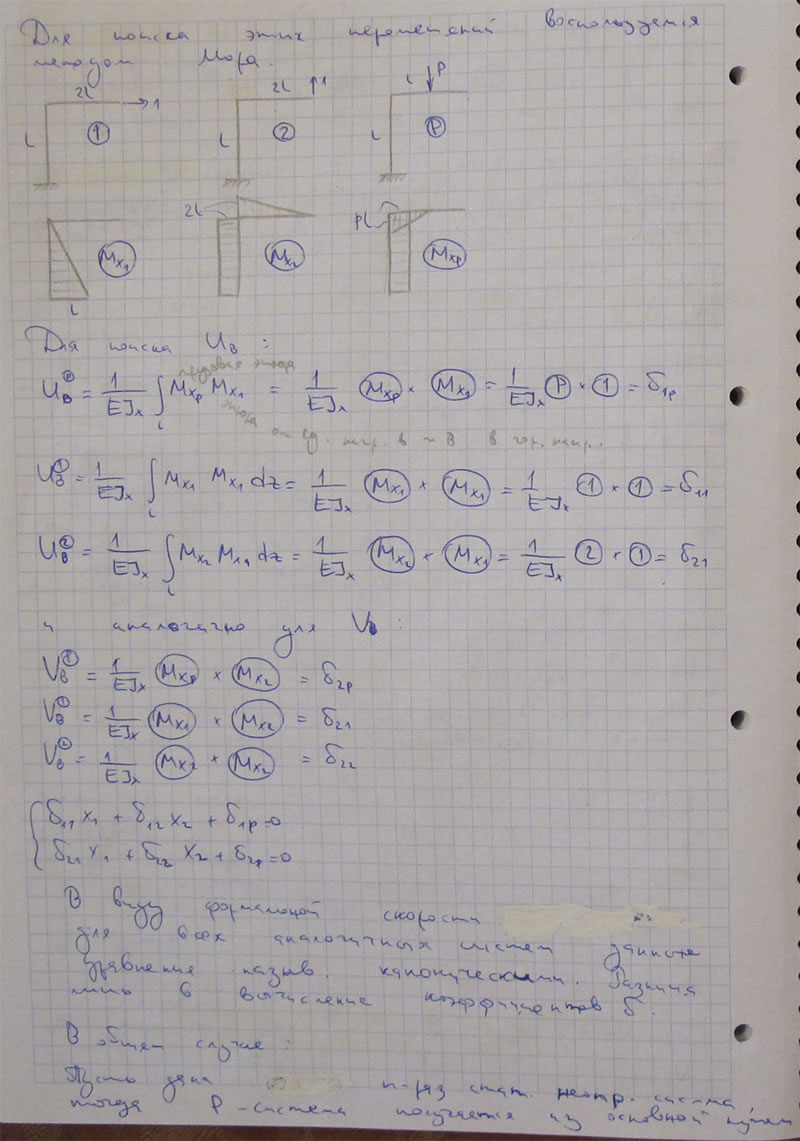 Для поиска этих перемещений воспользуемся
методом Мора.
2l →1 2l ↑1 l ↓P
l ① l ② l Ⓟ
2l Pl
Mx1 Mx2 Mxp
l
Для поиска U_B :
грузовая эпюра
U_B^P = 1/EJx ∫_l Mxp Mx1 = 1/EJx (Mxp) × (Mx1) = 1/EJx Ⓟ × ① = δ1p
эпюра от ед. нагр. в т. B в гор. напр.
U_B^① = 1/EJx ∫_l Mx1 Mx1 dz = 1/EJx (Mx1) × (Mx1) = 1/EJx ① × ① = δ11
U_B^② = 1/EJx ∫_l Mx2 Mx1 dz = 1/EJx (Mx2) × (Mx1) = 1/EJx ② × ① = δ21
и аналогично для V_B :
V_B = 1/EJx (Mxp) × (Mx2) = δ2p
V_B^① = 1/EJx (Mx1) × (Mx2) = δ21
V_B^② = 1/EJx (Mx2) × (Mx2) = δ22
δ11 x1 + δ12 x2 + δ1p = 0
δ21 x1 + δ22 x2 + δ2p = 0
В виду формальной скорости
для всех аналогичных систем данные
уравнения назыв. каноническими. Разница
лишь в вычисление коэффициентов δ.
В общем случае:
Пусть дана n-раз стат. неопр. система,
тогда P-система получается из основной путем